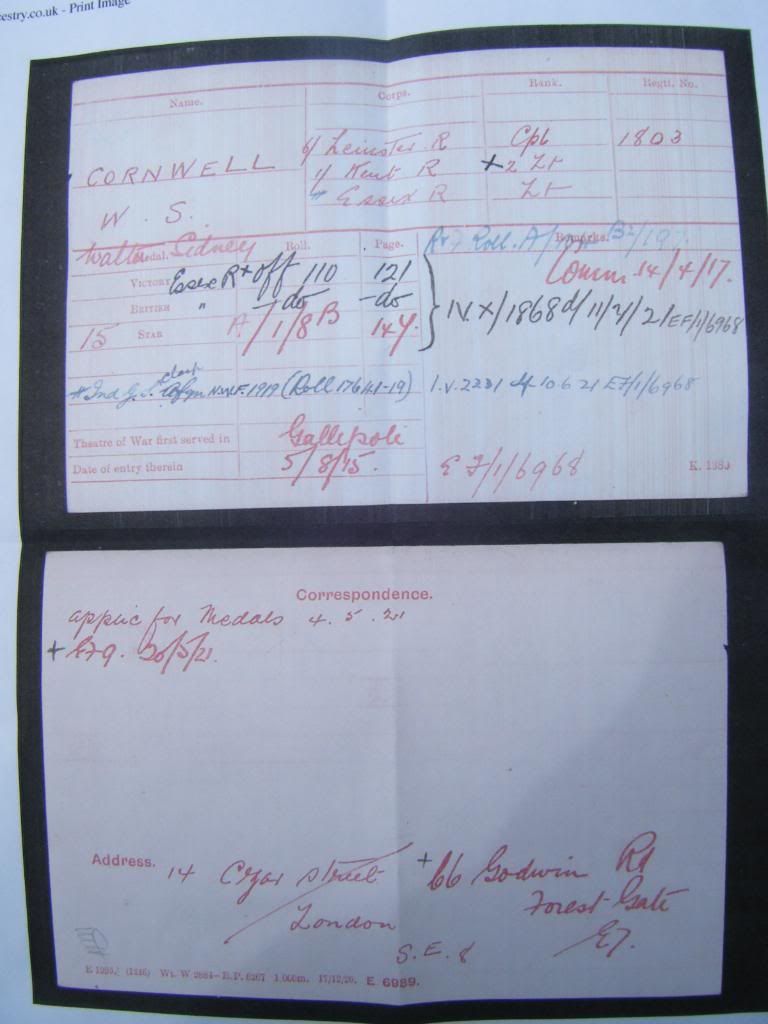 estry.co.uk - Print Image
Name. Corps. Rank. Regtl. No.
CORNWELL 6/ Leinster R Cpl 1803
1/ Kent R + 2 Lt
W. S. " Essex R Lt
Walter Sidney
Medal. Roll. Page. Roll. Remarks.
VICTORY Essex R + Off 110 121 Comm 14/4/17.
BRITISH " -do -do IV.X/1868d/11/Y/2/EF/1/6968
15 STAR A/1/8B 14Y.
clasp
* Ind G.S. Afgn N.W.F. 1919 (Roll 1764.1-19) I.V.2231 4 10 6 21 EF/1/6968
Theatre of War first served in Gallipoli
Date of entry therein 5/8/15. EF/1/6968 K. 1380
Correspondence.
applic for Medals 4. 5. 21
+ EF9. 20/5/21.
Address. 14 Czar Street + 66 Godwin Rd
London Forest Gate
S.E. 8 E7.
E 1295. (1246) Wt. W 2884-E.P. 6267 1,000m. 17/12/20. E 6989.